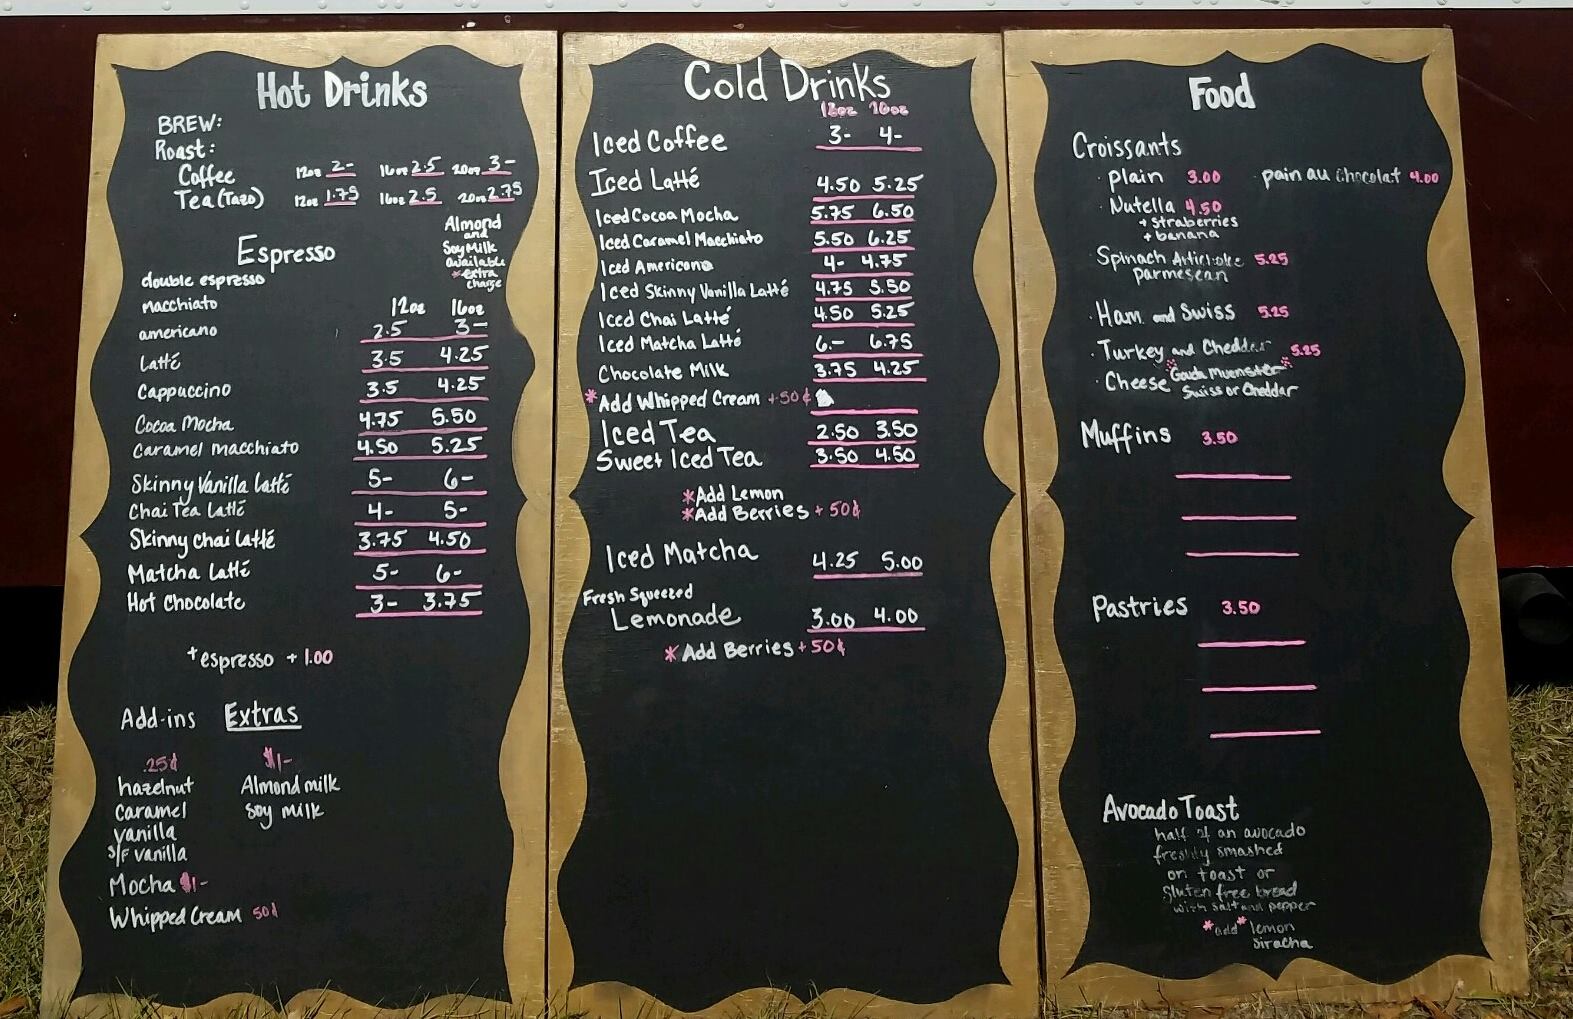 Hot Drinks
BREW:
Roast:
Coffee 12oz 2- 16oz 2.5 20oz 3-
Tea (Tazo) 12oz 1.75 16oz 2.5 20oz 2.75
Almond
and
Soy Milk
available
*extra
charge
Espresso
double espresso
macchiato 12oz 16oz
americano 2.5 3-
Latté 3.5 4.25
Cappuccino 3.5 4.25
Cocoa Mocha 4.75 5.50
Caramel macchiato 4.50 5.25
Skinny Vanilla latté 5- 6-
Chai Tea Latté 4- 5-
Skinny Chai Latté 3.75 4.50
Matcha Latté 5- 6-
Hot Chocolate 3- 3.75
+espresso + 1.00
Add-ins Extras
.25¢ $1-
hazelnut Almond milk
caramel soy milk
vanilla
s/f vanilla
Mocha $1-
Whipped Cream 50¢
Cold Drinks
12oz 16oz
Iced Coffee 3- 4-
Iced Latté 4.50 5.25
Iced Cocoa Mocha 5.75 6.50
Iced Caramel Macchiato 5.50 6.25
Iced Americano 4- 4.75
Iced Skinny Vanilla Latté 4.75 5.50
Iced Chai Latté 4.50 5.25
Iced Matcha Latté 6.- 6.75
Chocolate Milk 3.75 4.25
*Add Whipped Cream +50¢
Iced Tea 2.50 3.50
Sweet Iced Tea 3.50 4.50
*Add Lemon
*Add Berries + 50¢
Iced Matcha 4.25 5.00
Fresh Squeezed
Lemonade 3.00 4.00
*Add Berries +50¢
Food
Croissants
· plain 3.00 · pain au chocolat 4.00
· Nutella 4.50
+ straberries
+ banana
· Spinach Artichoke 5.25
parmesean
· Ham and Swiss 5.25
· Turkey and Cheddar 5.25
· Cheese *Gouda Muenster*
Swiss or Cheddar
Muffins 3.50
Pastries 3.50
Avocado Toast
half of an avocado
freshly smashed
on toast or
gluten free bread
with salt and pepper
*add* lemon
siracha